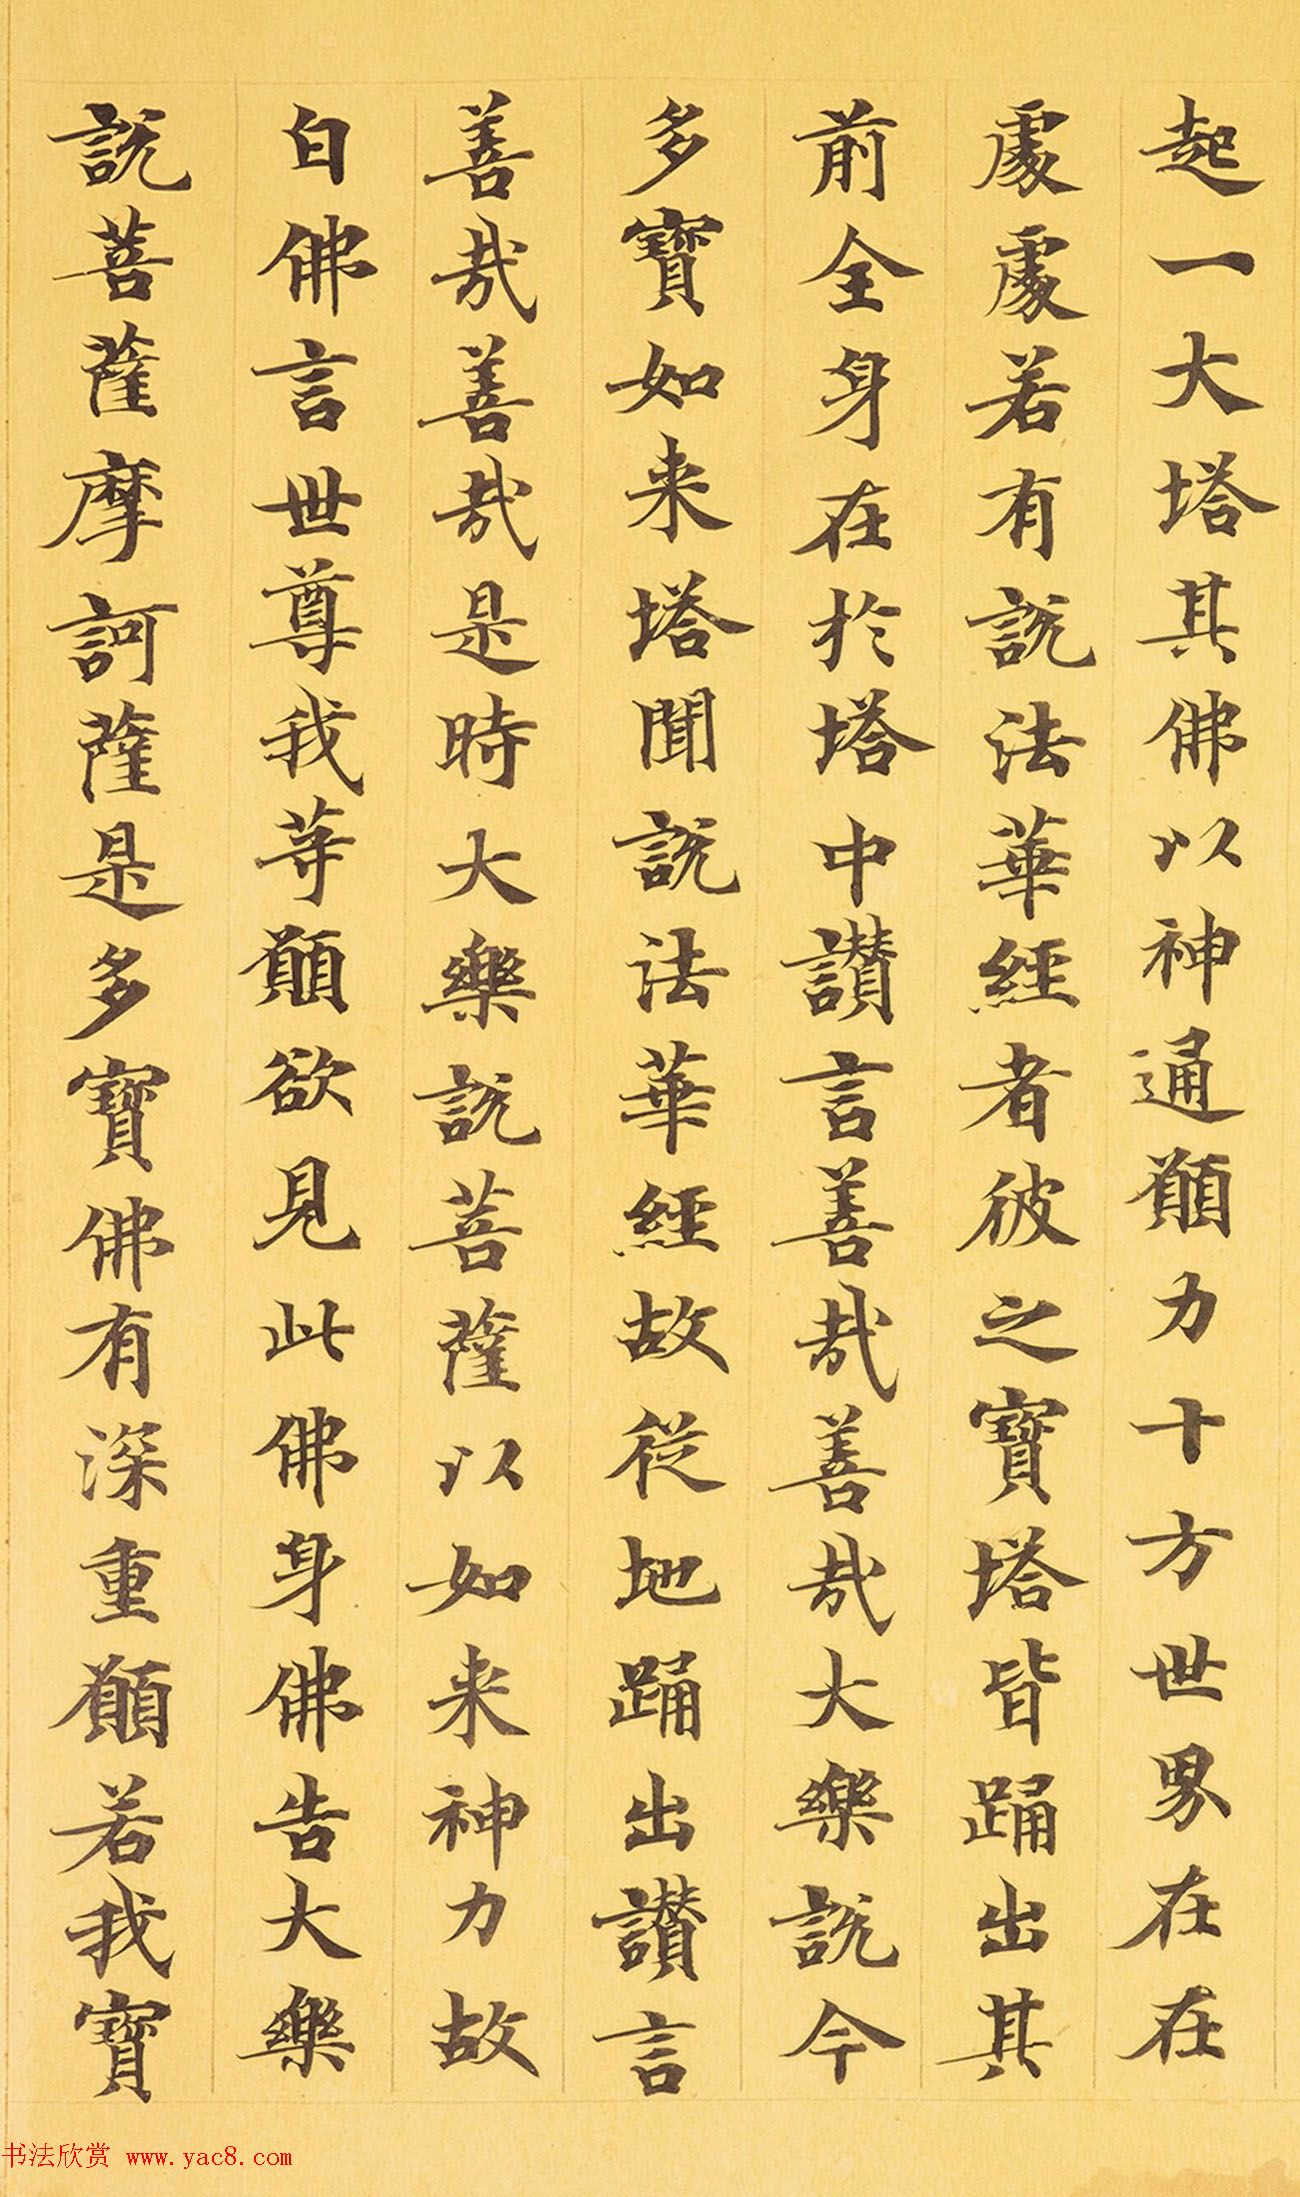 起一大塔其佛以神通願力十方世界在在
處處若有說法華經者彼之寶塔皆踊出其
前全身在於塔中讚言善哉善哉大樂說今
多寶如来塔聞說法華經故從地踊出讚言
善哉善哉是時大樂說菩薩以如来神力故
白佛言世尊我等願欲見此佛身佛告大樂
說菩薩摩訶薩是多寶佛有深重願若我寶
书法欣赏 www.yac8.com